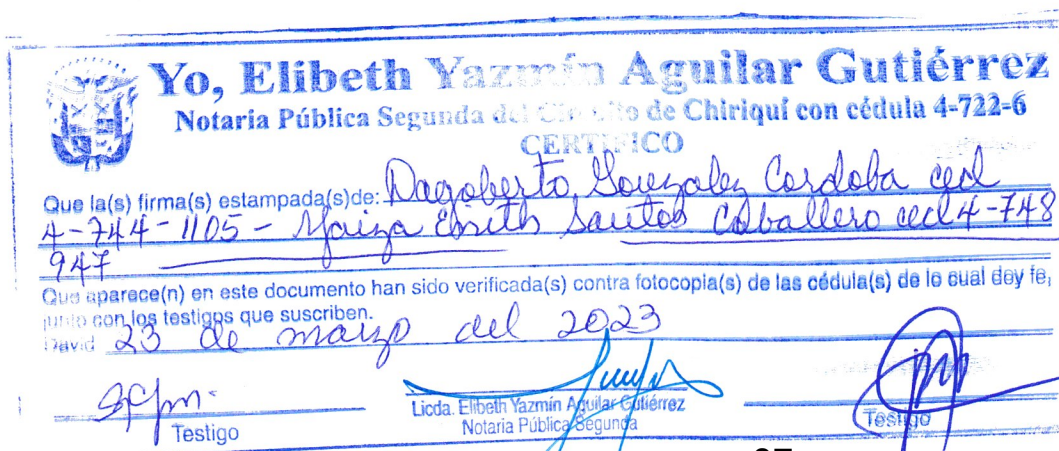 Yo, Elibeth Yazmín Aguilar Gutiérrez
Notaria Pública Segunda del Circuito de Chiriquí con cédula 4-722-6
CERTIFICO
Que la(s) firma(s) estampada(s)de: Dagoberto Gonzalez Cordoba ced
4-744-1105 - Yaiza Santos Caballero ced 4-748
947
Que aparece(n) en este documento han sido verificada(s) contra fotocopia(s) de las cédula(s) de lo cual doy fe,
junto con los testigos que suscriben.
David 23 de marzo del 2023
Testigo
Licda. Elibeth Yazmín Aguilar Gutiérrez
Notaria Pública Segunda
Testigo